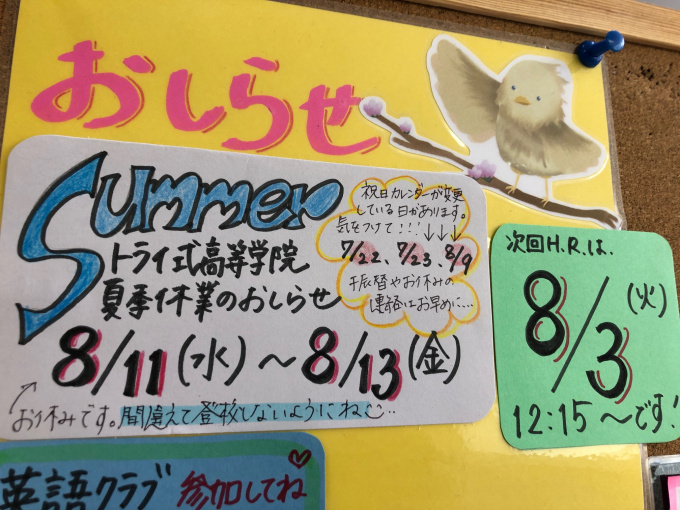 おしらせ
Summer
トライ式高等学院
夏季休業のおしらせ
8/11(水)～8/13(金)
お休みです。間違えて登校しないようにね
祝日カレンダーが変更
している日があります。
気をつけて!!!↓↓↓
7/22、7/23、8/9
振替やお休みの
連絡はお早めに…
次回H.R.は、
8/3(火)
12:15～です!
英語クラブ 参加してね